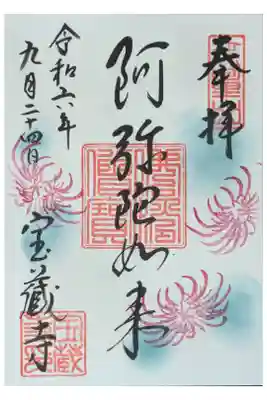 奉拝
阿弥陀如来
令和六年
九月二十四日
宝蔵寺